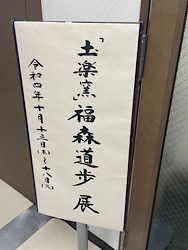 「土楽窯」福森道歩 展
令和四年十月十三日(木)〜十八日(火)